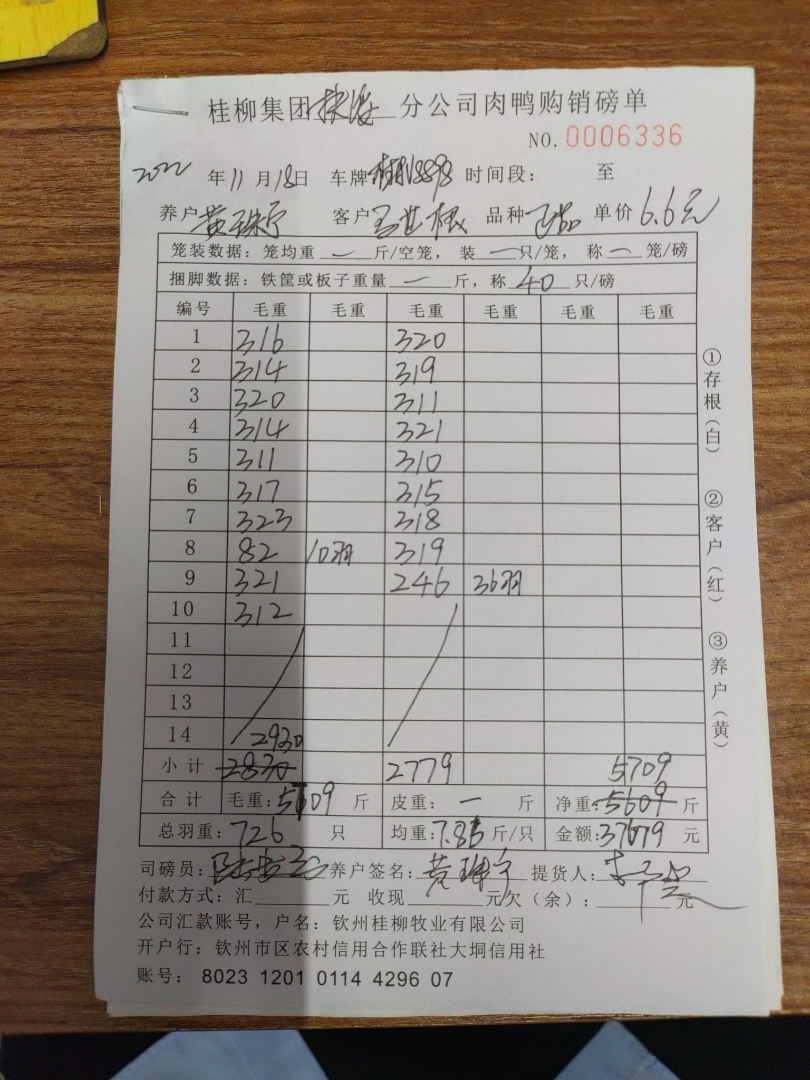 桂柳集团 分公司肉鸭购销磅单
NO.0006336
2022年11月18日 车牌 8898 时间段： 至
养户 黄 客户 王世根 品种 单价6.6元
笼装数据：笼均重 一 斤/空笼，装 一 只/笼，称 一 笼/磅
捆脚数据：铁筐或板子重量 一 斤，称 40 只/磅
编号 毛重 毛重 毛重 毛重 毛重 毛重
1 316 320
2 314 319
3 320 311
4 314 321
5 311 310
6 317 315
7 323 318
8 82 10羽 319
9 321 246 36羽
10 312
11
12
13
14 2930
小计 2830 2779 5709
合计 毛重：5709 斤 皮重：一 斤 净重：5609 斤
总羽重：726 只 均重：7.86 斤/只 金额：37679 元
司磅员： 养户签名：黄 提货人：
付款方式：汇 元 收现 元欠（余）： 元
公司汇款账号，户名：钦州桂柳牧业有限公司
开户行：钦州市区农村信用合作联社大垌信用社
账号： 8023 1201 0114 4296 07
①存根（白）
②客户（红）
③养户（黄）